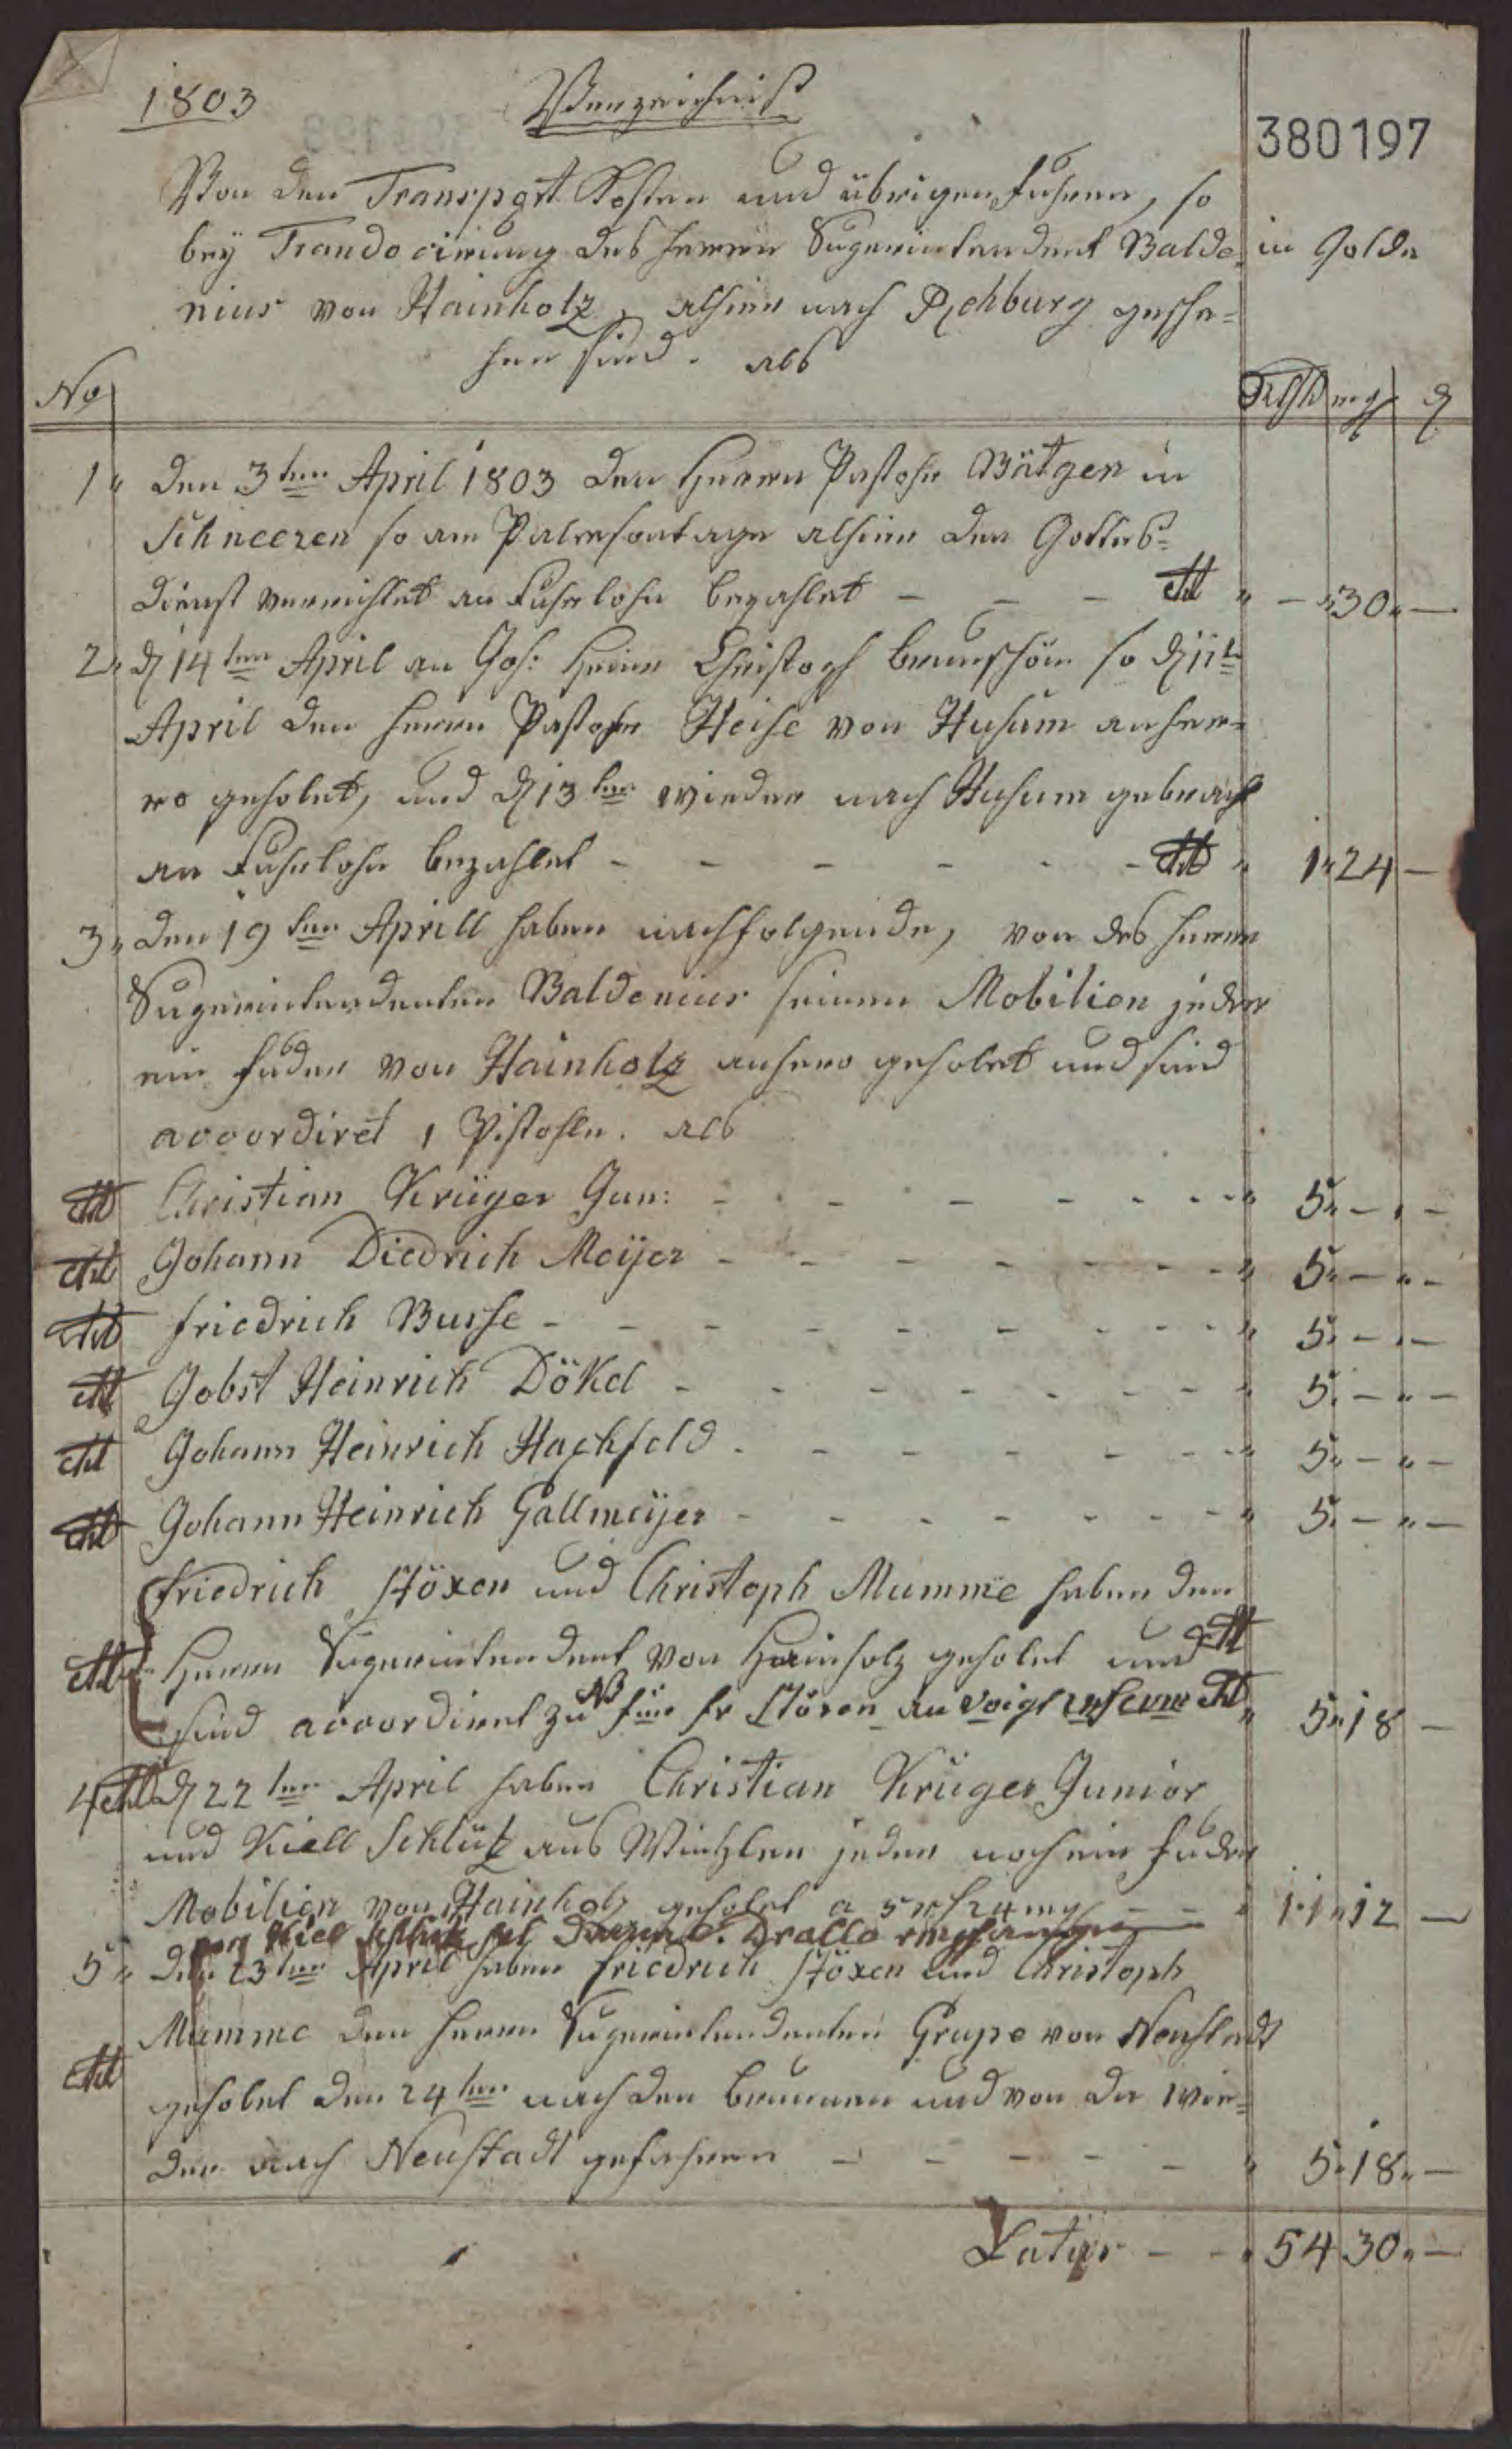 1803 Verzeichniß
380197
Von den Transport Kosten und übrigen Fuhren, so
bey Translocirung des Herren Superintendent Balde= in Golde
nius von Hainholz, alhier nach Rehburg gesche=
hen sind. als
No Rthlr mg ₰
1" den 3ten April 1803 den Herrn Pastohr Bätgen in
Schneeren so am Palmsontage alhier den Gottes=
dienst verrichtet an Fuhrlohn bezahlet - - - " - "30"-
2" d 14ten April an Joh: Heinr Christoph so d 11t
April den Herrn Pastohr Heise von Husum anhe=
ro geholet, und d 13ten wieder nach Husum gebracht
an Fuhrlohn bezahlet - - - - - - " 1"24 -
3" den 19ten Aprill haben nachfolgende, von des Herrn
Superintendenten Baldenius seinen Mobilien jeder
ein Fuder von Hainholz anhero geholet und sind
accordiret 1 Pistohle. als
Christian Krüger Jun: - - - - - - - " 5"- " -
Johann Diedrich Meijer - - - - - - - " 5"- " -
Friedrich Busse - - - - - - - - - " 5"- " -
Jobst Heinrich Dökel - - - - - - - " 5"- " -
Johann Heinrich Hachfeld - - - - - - " 5"- " -
Johann Heinrich Gallmeijer - - - - - - " 5"- " -
Friedrich Stöxen und Christoph Mumme haben den
Herrn Superintendent von Hainholz geholet und
sind accordiret zu NB für Fr Stöxen an Voigt " 5"18 -
4 d 22ten April haben Christian Krüger Junior
und Kiell Schlüt aus Wintzlar jeder noch ein Fuder
Mobilien von Hainholz geholet a 5 rth 24 mg - - " 11"12 -
Kiel Drallo
5" den 23ten April haben Friedrich Stöxen und Christoph
Mumme den Herrn Superintendenten Grupe von Neustadt
geholet den 24ten nach den Brunnen und von da wie=
der nach Neustadt gefahren - - - - - " 5"18"-
Latus - - " 54 30"-